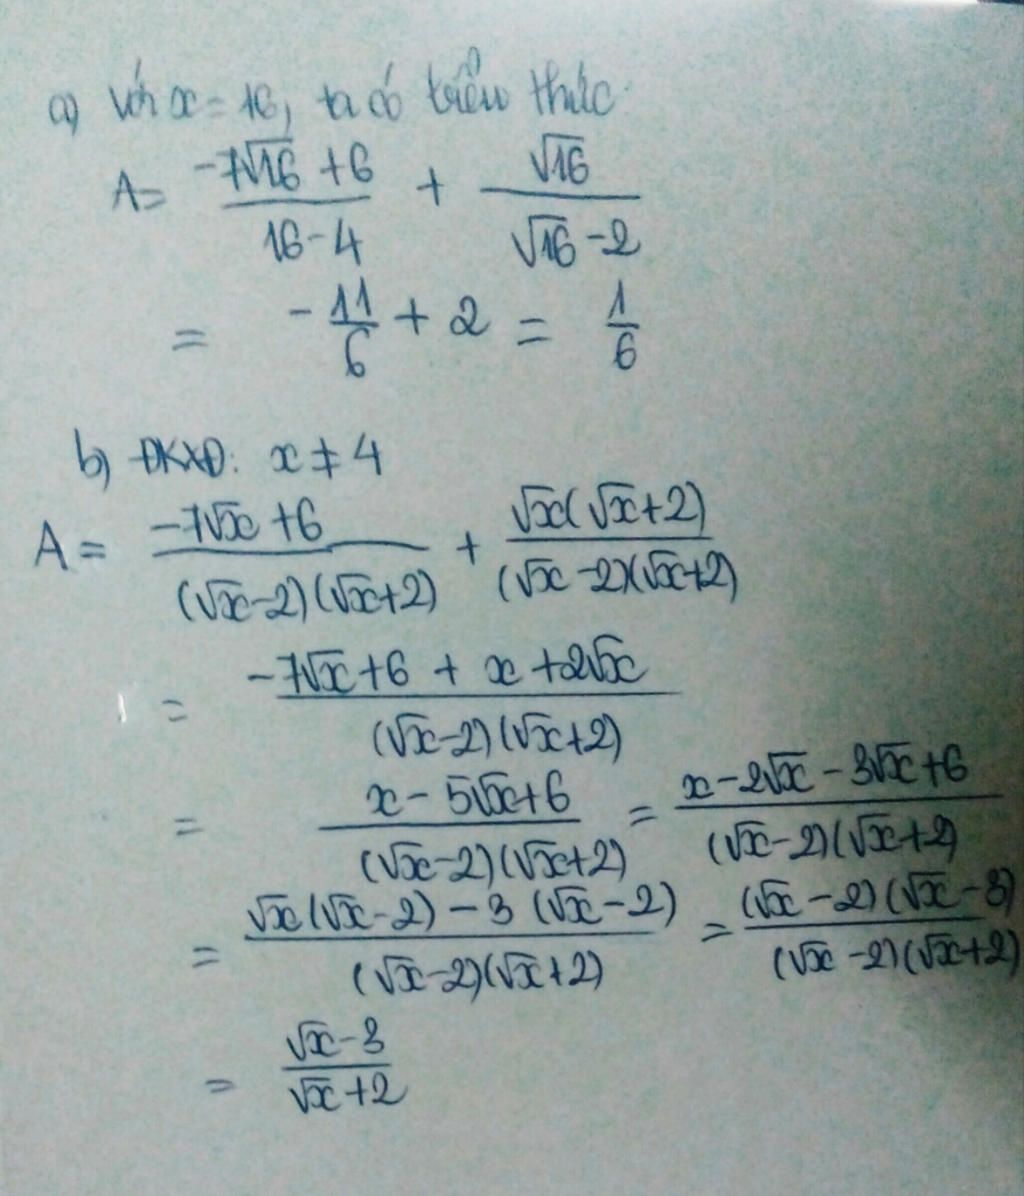 a) Với x = 16, ta có biểu thức
A = (-7√16 + 6)/(16 - 4) + √16/(√16 - 2)
= -11/6 + 2 = 1/6
b) ĐKXĐ: x ≠ 4
A = (-7√x + 6)/((√x-2)(√x+2)) + (√x(√x+2))/((√x-2)(√x+2))
= (-7√x + 6 + x + 2√x)/((√x-2)(√x+2))
= (x - 5√x + 6)/((√x-2)(√x+2)) = (x - 2√x - 3√x + 6)/((√x-2)(√x+2))
= (√x(√x-2) - 3(√x-2))/((√x-2)(√x+2)) = ((√x-2)(√x-3))/((√x-2)(√x+2))
= (√x-3)/(√x+2)